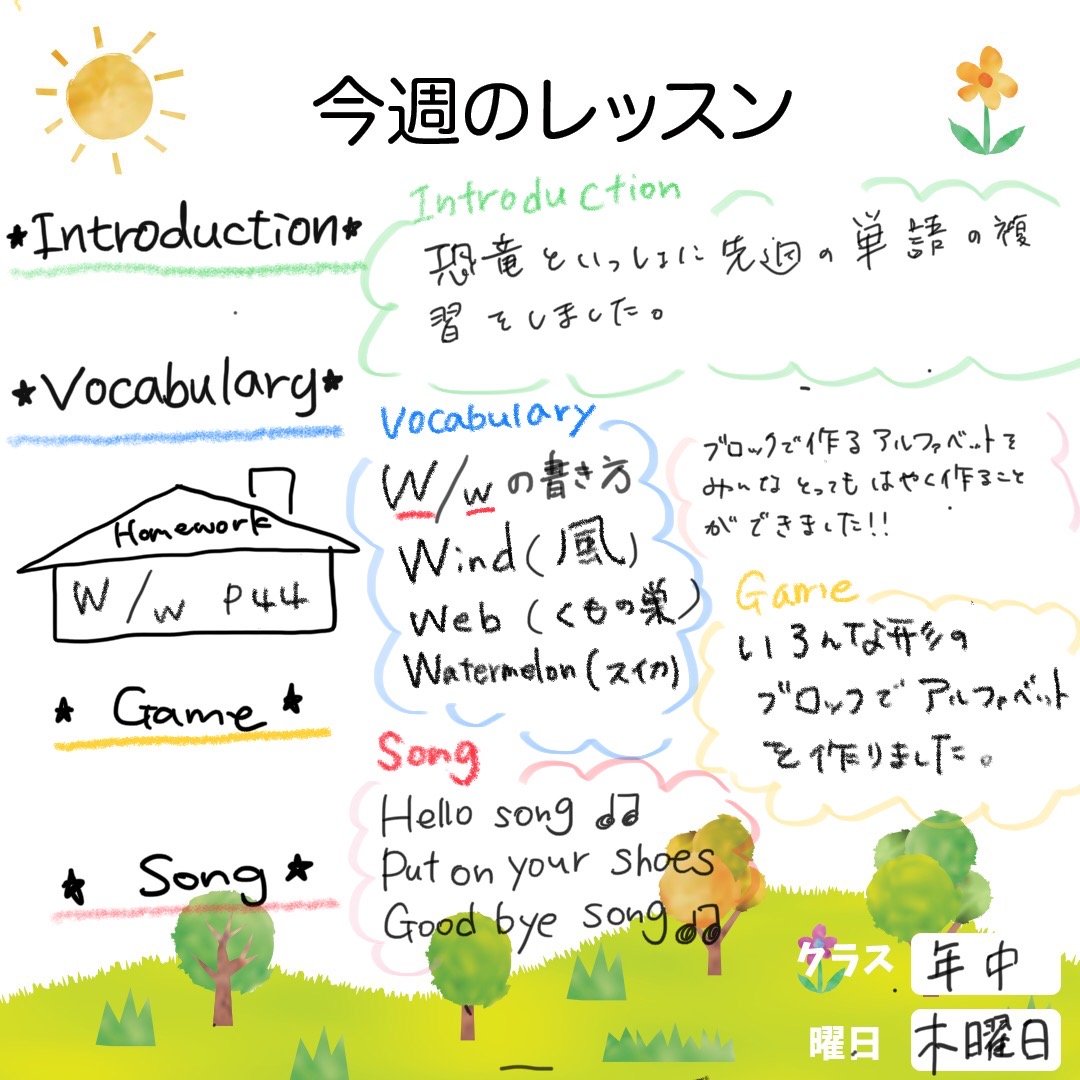 今週のレッスン
*Introduction*
Introduction
恐竜といっしょに先週の単語の複
習をしました。
*Vocabulary*
Homework
W/w P44
Vocabulary
W/wの書き方
Wind(風)
Web (くもの巣)
Watermelon(スイカ)
ブロックで作るアルファベットを
みんなとってもはやく作ること
ができました!!
* Game *
Game
いろんな形の
ブロックでアルファベット
を作りました。
* Song *
Song
Hello song ♫
Put on your shoes
Good bye song ♫
クラス 年中
曜日 木曜日